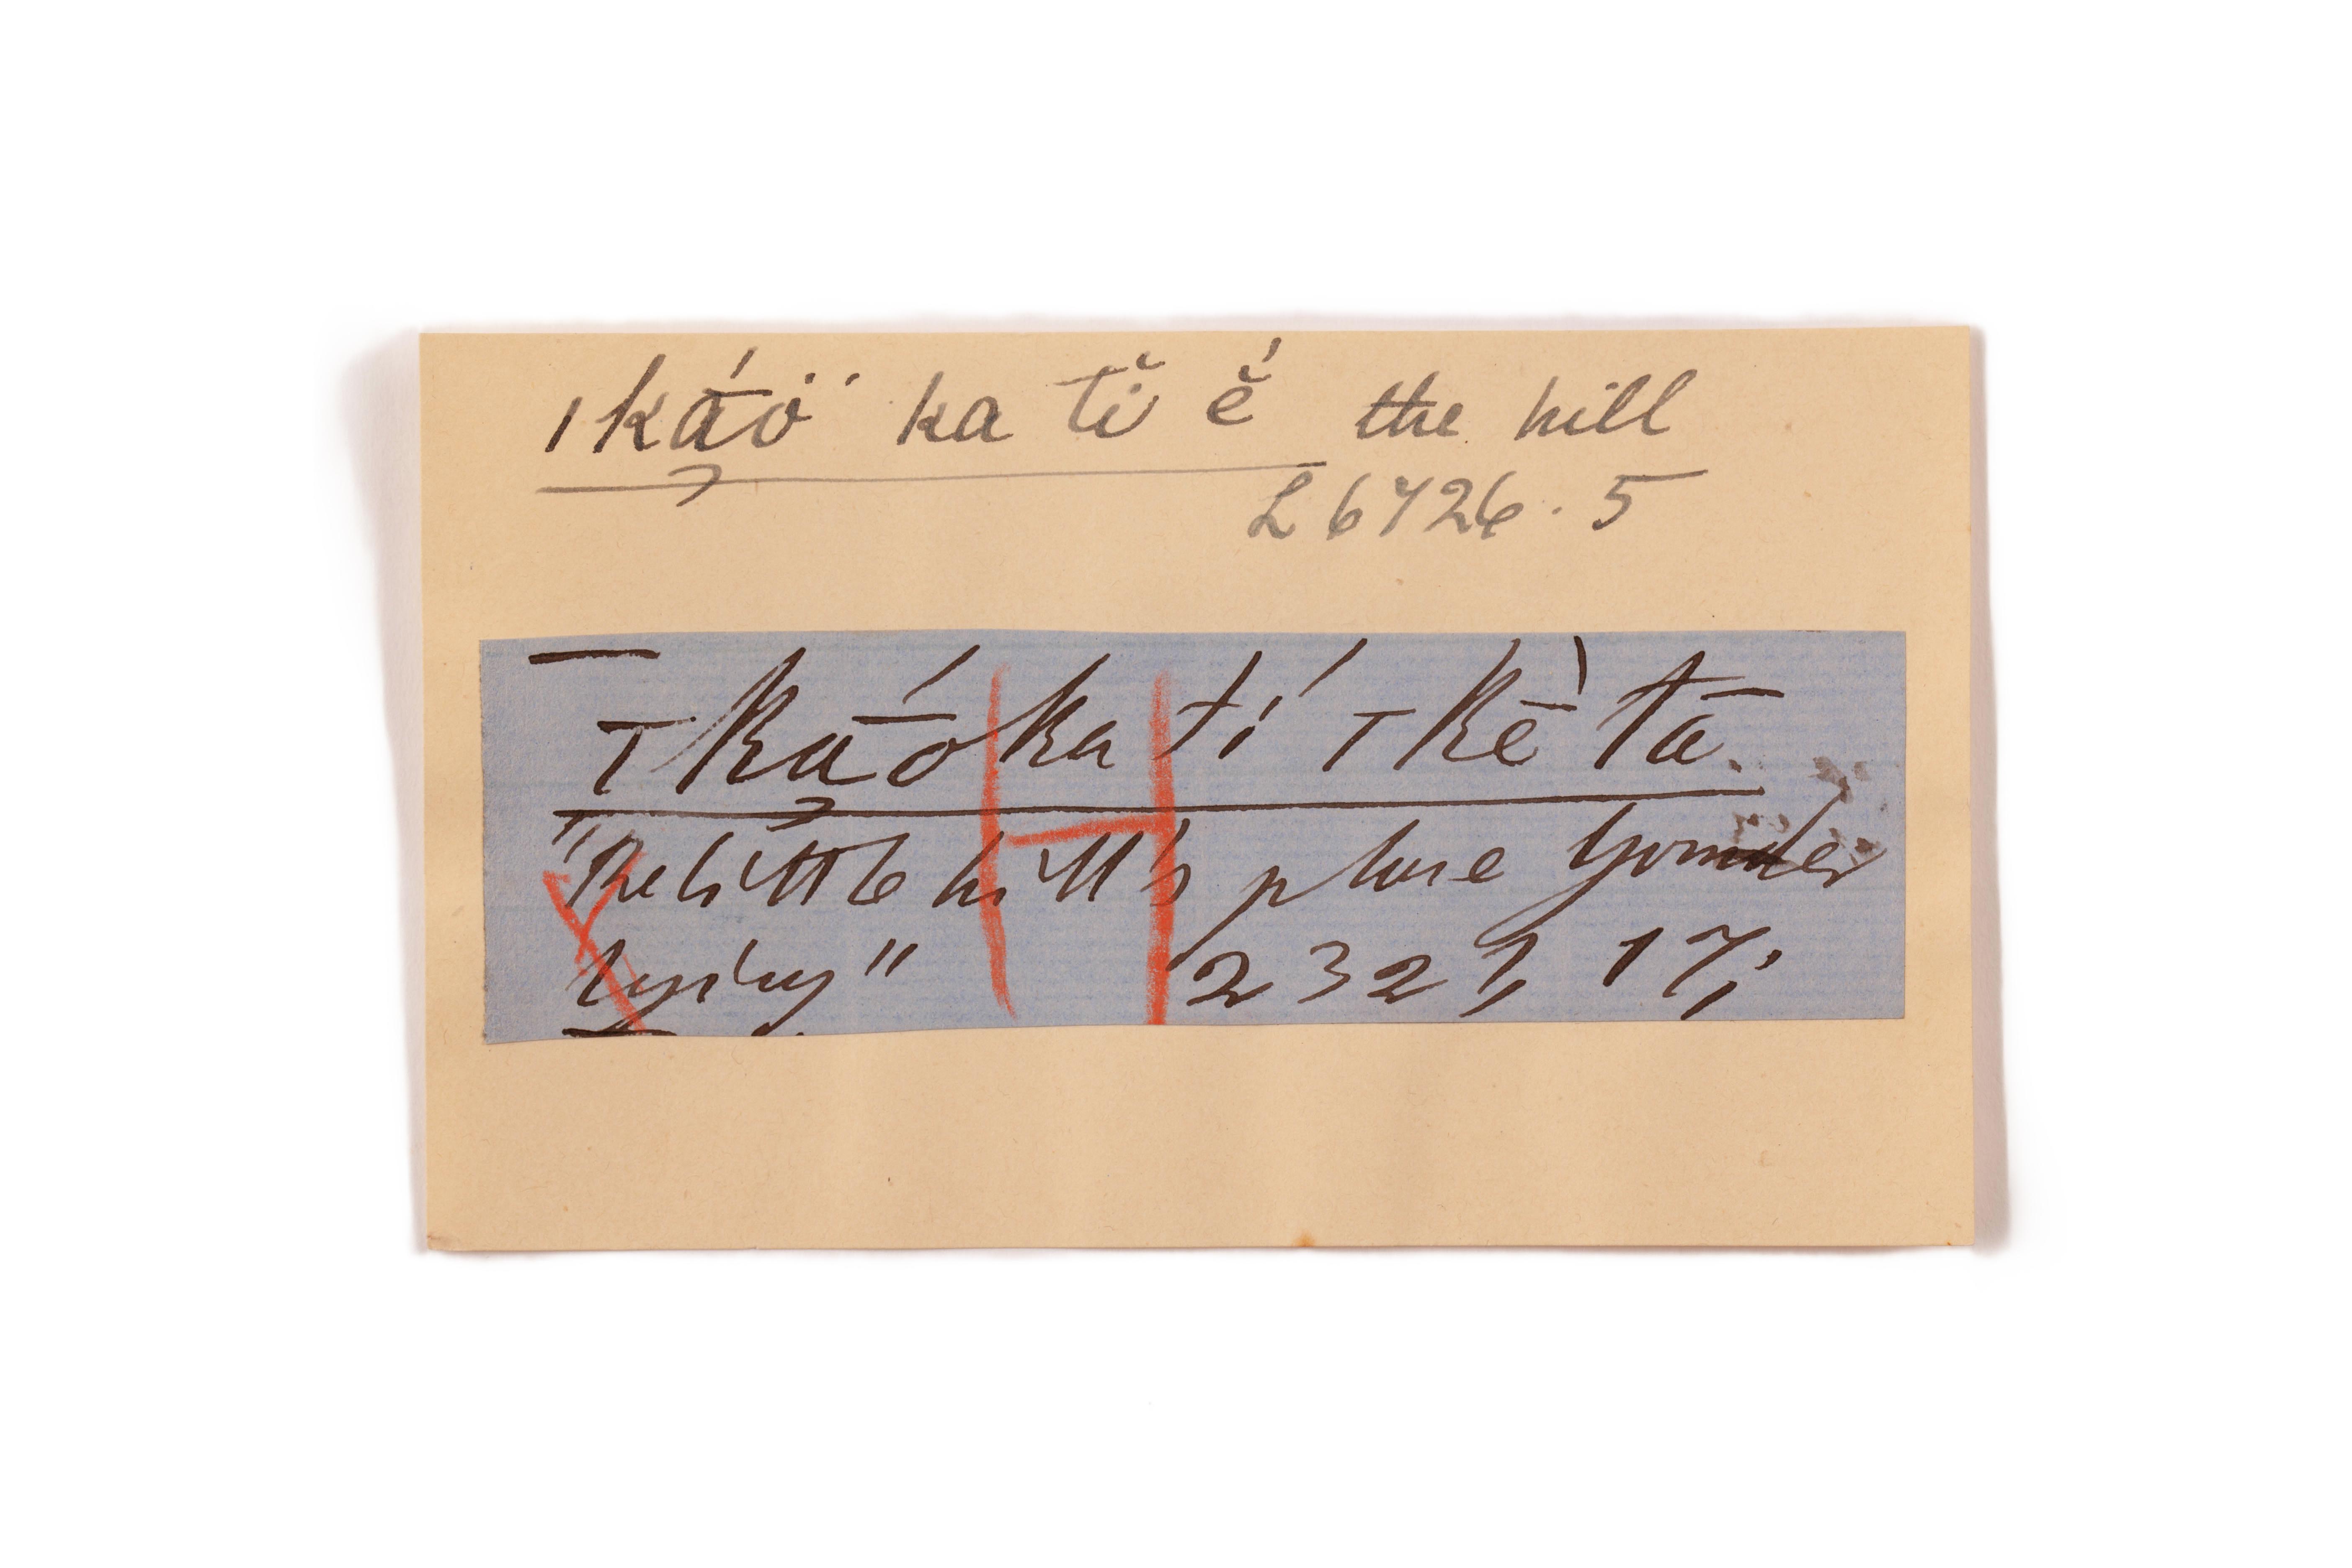 ıkā́ö̤ ka tĭ ĕ́ the hill
L 6726. 5
Tkā́o ka tí ꞱkḕTā.
"The little hill's place yonder
lying" 2327, 17;